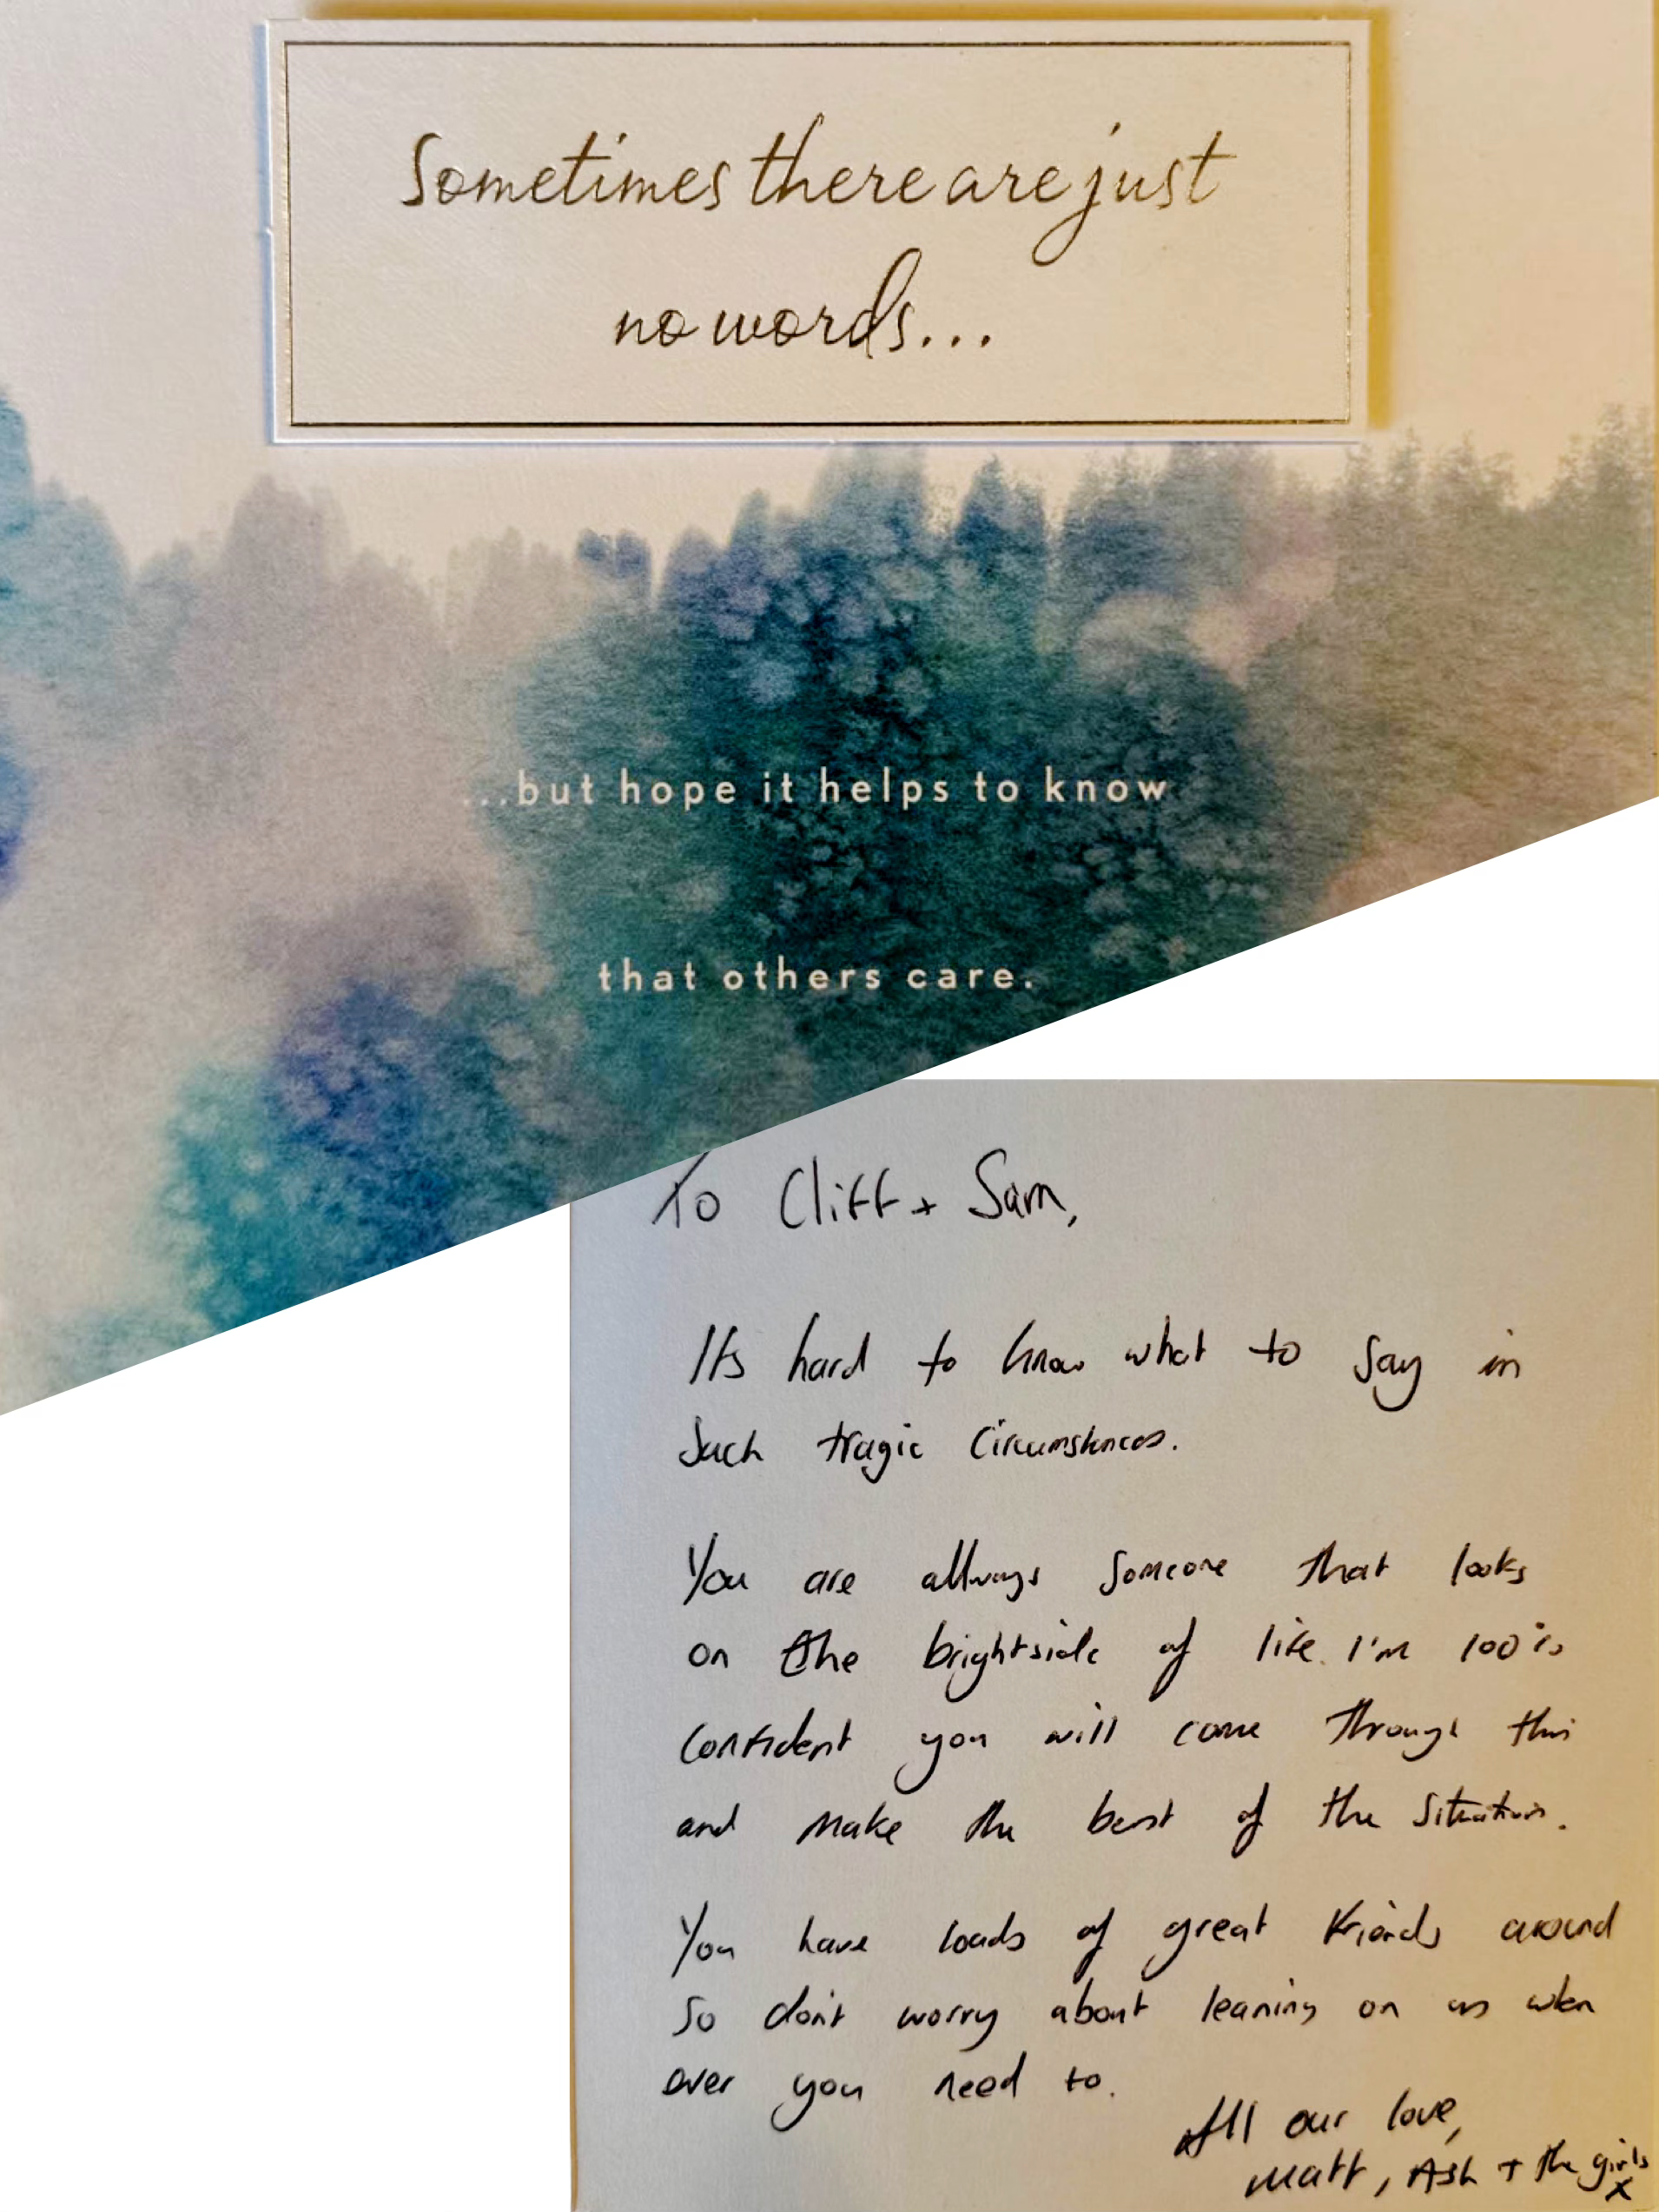 Sometimes there are just
no words...
...but hope it helps to know
that others care.
To Cliff + Sam,
Its hard to know what to say in
such tragic circumstances.
You are allways someone that looks
on the brightside of life. I'm 100%
confident you will come through this
and make the best of the situation.
You have loads of great friends around
so don't worry about leaning on us when
ever you need to.
All our love,
Matt, Ash + the girls
x